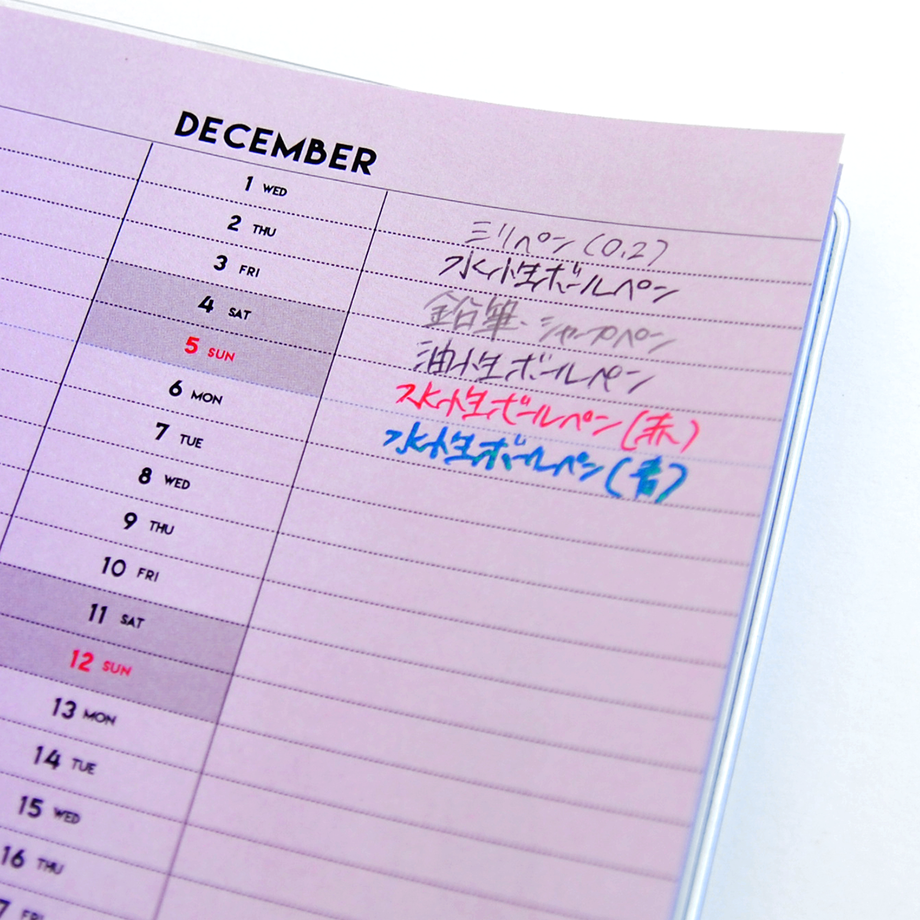 DECEMBER
1 WED
ミリペン(0.2)
2 THU
水性ボールペン
3 FRI
鉛筆・シャープペン
4 SAT
油性ボールペン
5 SUN
水性ボールペン(赤)
6 MON
水性ボールペン(青)
7 TUE
8 WED
9 THU
10 FRI
11 SAT
12 SUN
13 MON
14 TUE
15 WED
16 THU
FRI